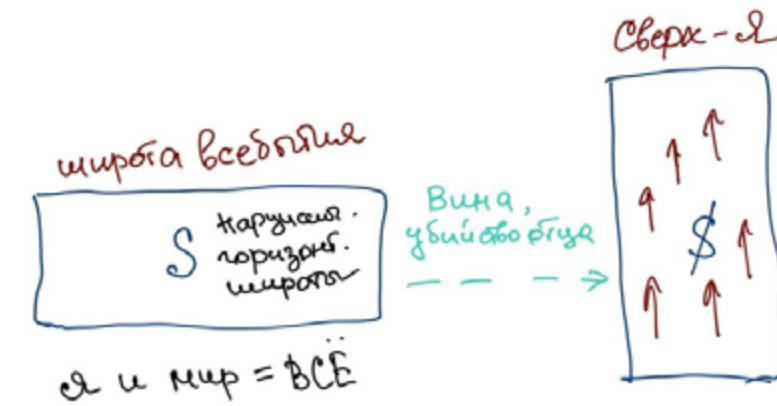 Сверх-Я
широта всебытия
S
нарцисш.
горизонт.
широты
Вина,
убийство отца
$
я и мир = ВСЁ